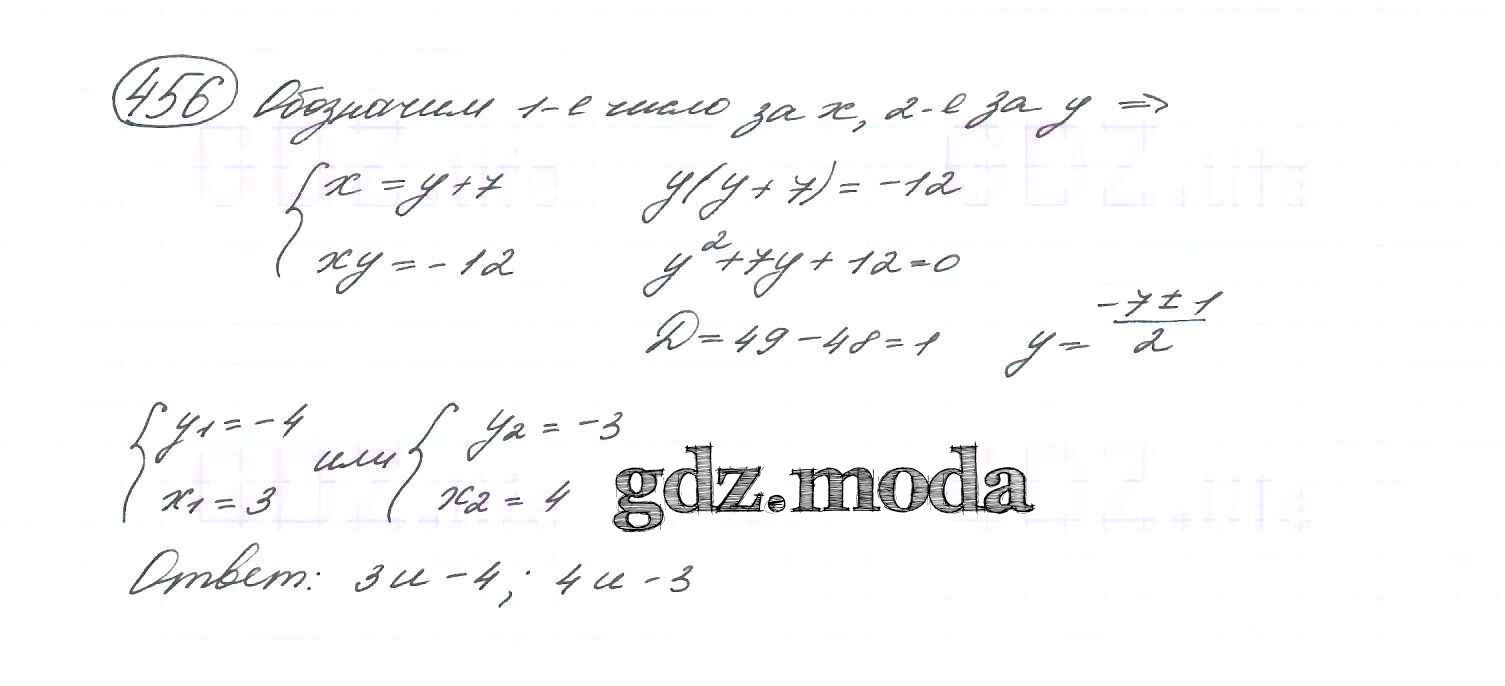 456 Обозначим 1-е число за x, 2-е за y =>
{ x = y+7
xy = -12
y(y+7) = -12
y²+7y+12=0
D=49-48=1 y= (-7±1)/2
{ y1=-4 x1=3 или { y2=-3 x2=4
gdz.moda
Ответ: 3 и -4; 4 и -3